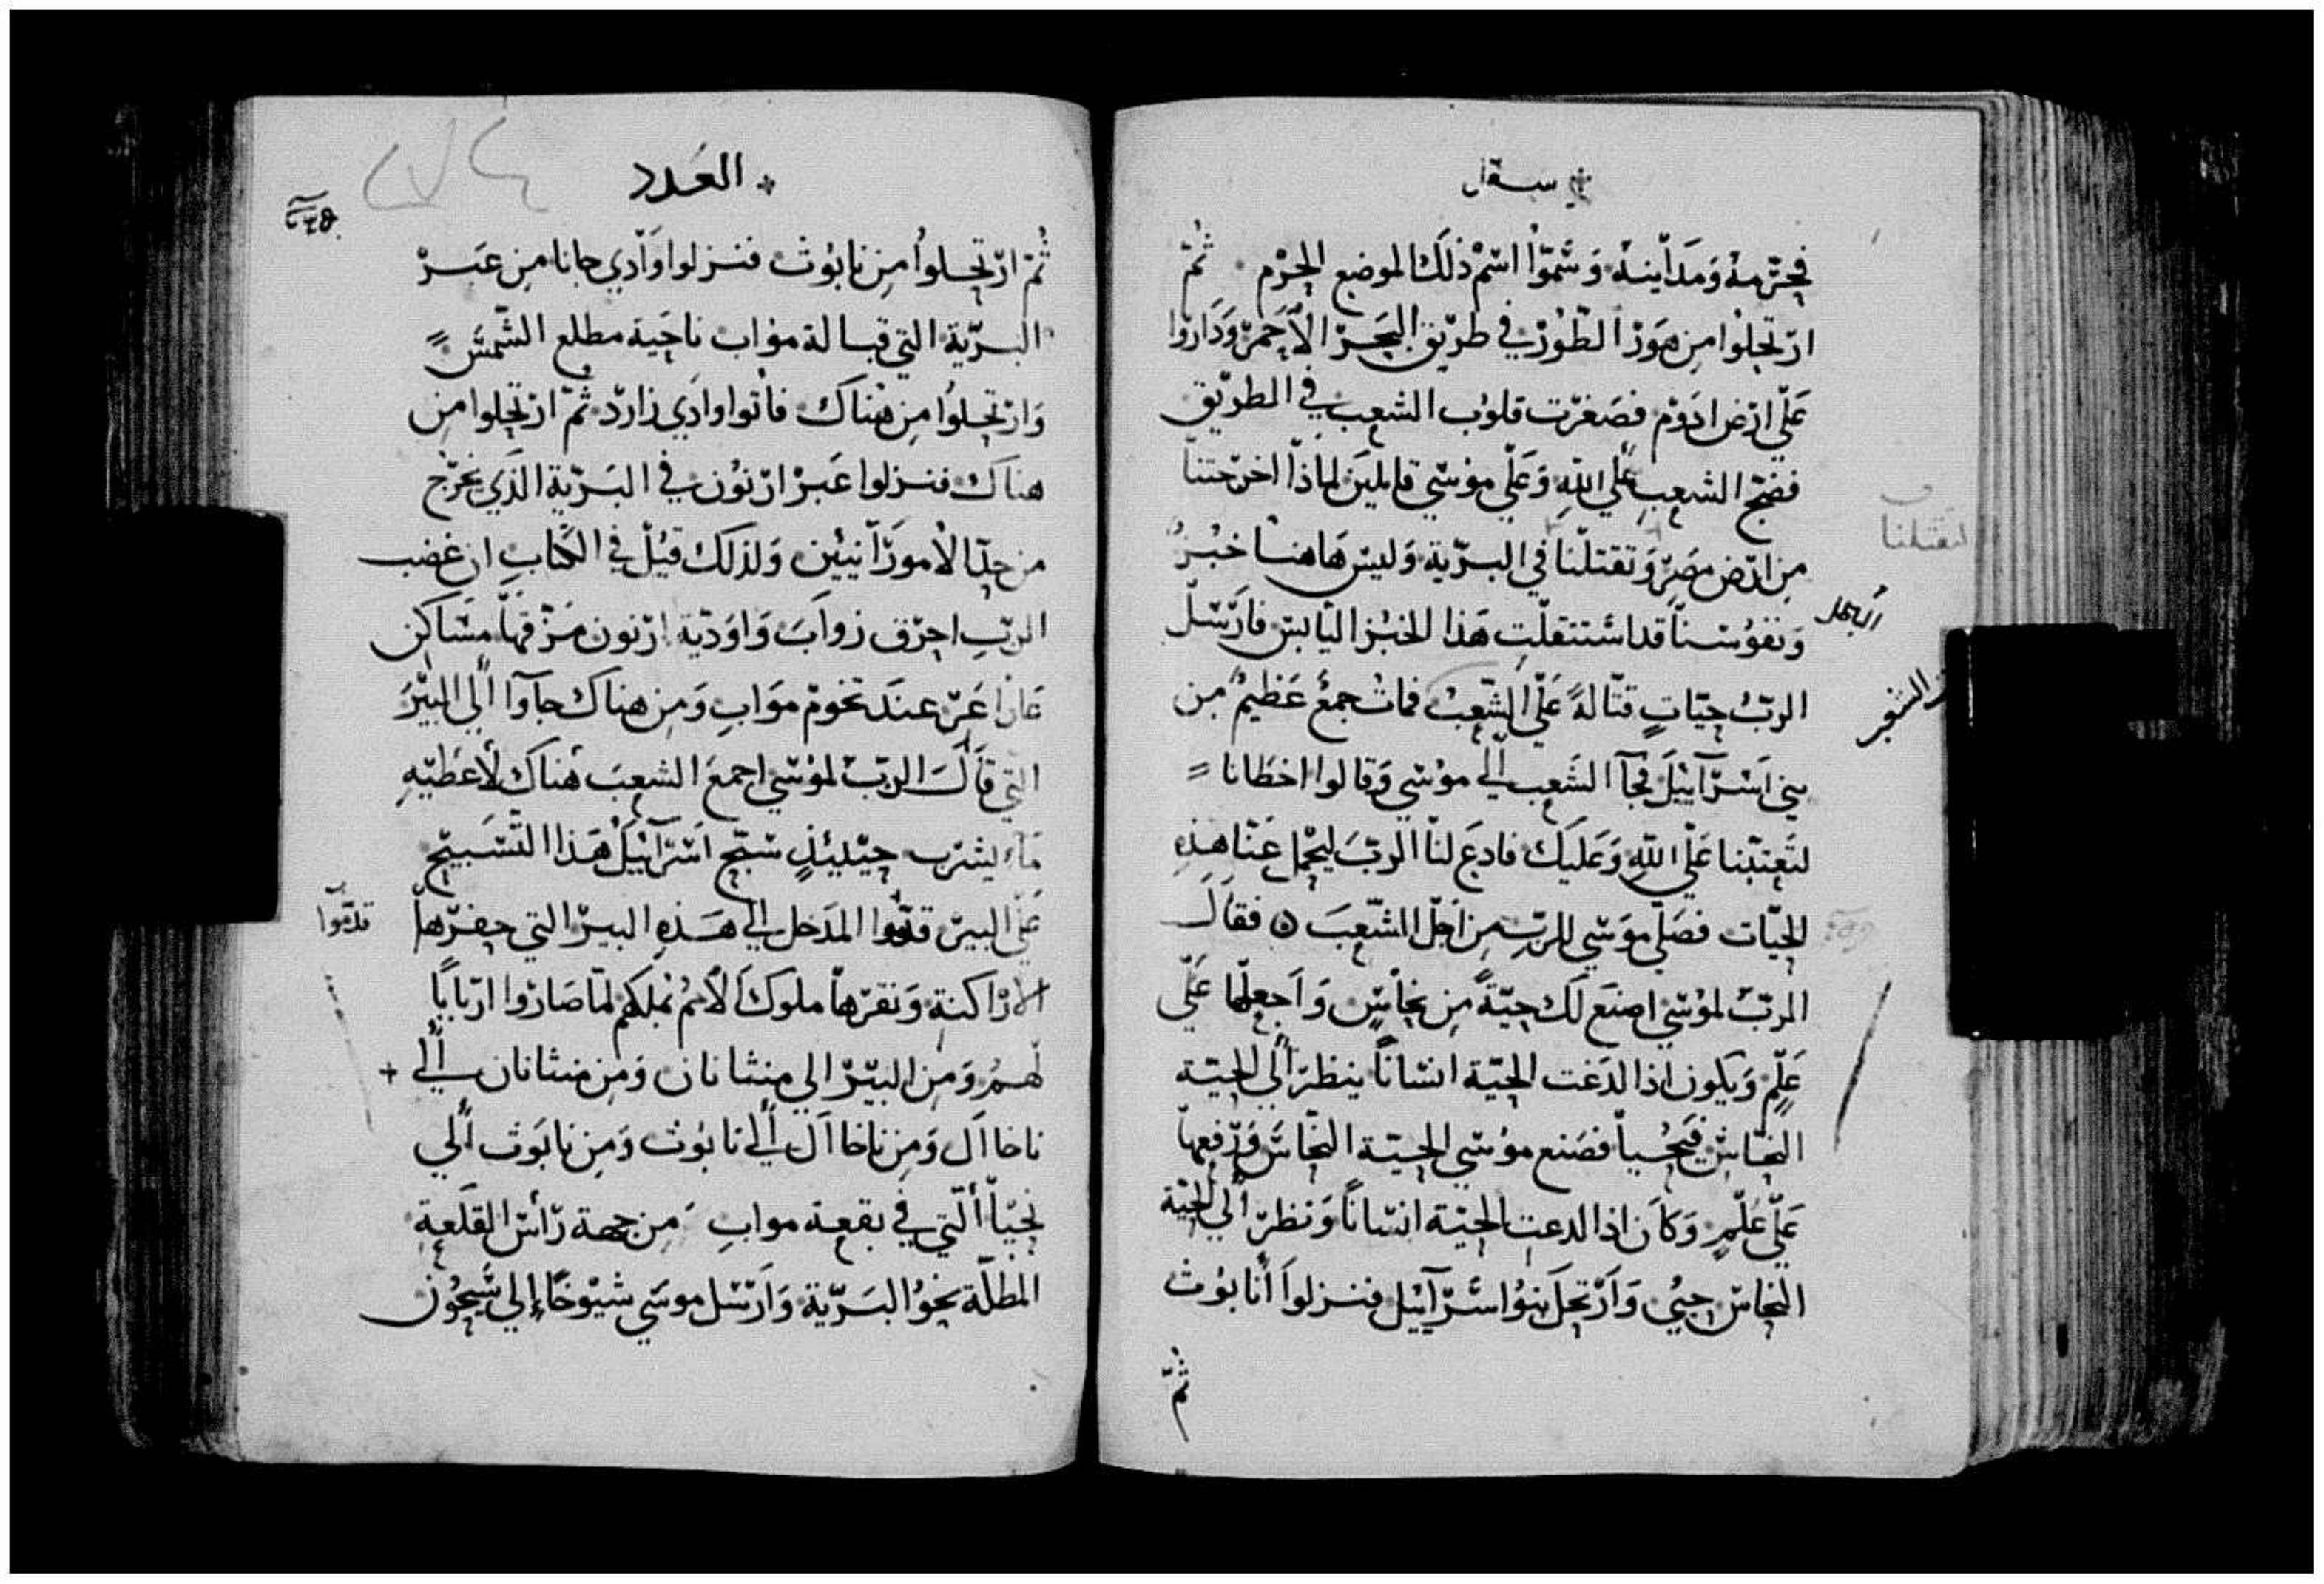 سفر
فحرمه ومداينه وسموا اسم ذلك الموضع الحرم ثم
ارتحلوا من هور الطور في طريق البحر الاحمر وداروا
علي ارض ادوم فصغرت قلوب الشعب في الطريق
فضج الشعب علي الله وعلي موسي قايلين لماذا اخرجتنا
من ارض مصر وتقتلنا في البرية وليس هاهنا خبز
ونفوسنا قد استثقلت هذا الخبز اليابس فارسل
الرب حيات قتالة علي الشعب فمات جمع عظيم من
بني اسرآييل فجآ الشعب الي موسي وقالوا اخطانا
لتعتبنا علي الله وعليك فادع لنا الرب ليحمل عنا هذه
الحيات فصلي موسي للرب من اجل الشعب فقال
الرب لموسي اصنع لك حية من نحاس واجعلها علي
علم ويكون اذا لدغت الحية انسانا ينظر الي الحية
النحاس فيحيا فصنع موسي الحية النحاس ورفعها
علي علم وكان اذا لدعت الحية انسانا ونظر الي الحية
النحاس حيي وارتحل بنوا اسرآييل فنزلوا انابوث
ثم
لتقتلنا
العدد
ثم ارتحلوا من نابوث فنزلوا وادي جانا من عبر
البرية التي قبالة مواب ناحية مطلع الشمس
وارتحلوا من هناك فاتوا وادي زارد ثم ارتحلوا من
هناك فنزلوا عبر ارنون في البرية الذي يخرج
من حد الامورانيين ولذلك قيل في الكتاب ان غضب
الرب احرق زواب واودية ارنون مزقها مساكن
عارا عر عند تخوم مواب ومن هناك جاوآ الي البير
التي قال الرب لموسي اجمع الشعب هناك لأعطيه
مآء يشرب حينيذ سبح اسرآييل هذا التسبيح
علي البير قدموا المدخل الي هذه البير التي حفرها
الاراكنة ونقرها ملوك الأمم بملكهم لما صاروا اربابا
لهم ومن البير الي منثانان ومن منثانان الي
ناخاال ومن ناخاال الي نابوث ومن نابوث الي
نحيا التي في بقعة مواب من جهة رأس القلعة
المطلة نحو البرية وارسل موسي شيوخا إلي سيحون
قدموا